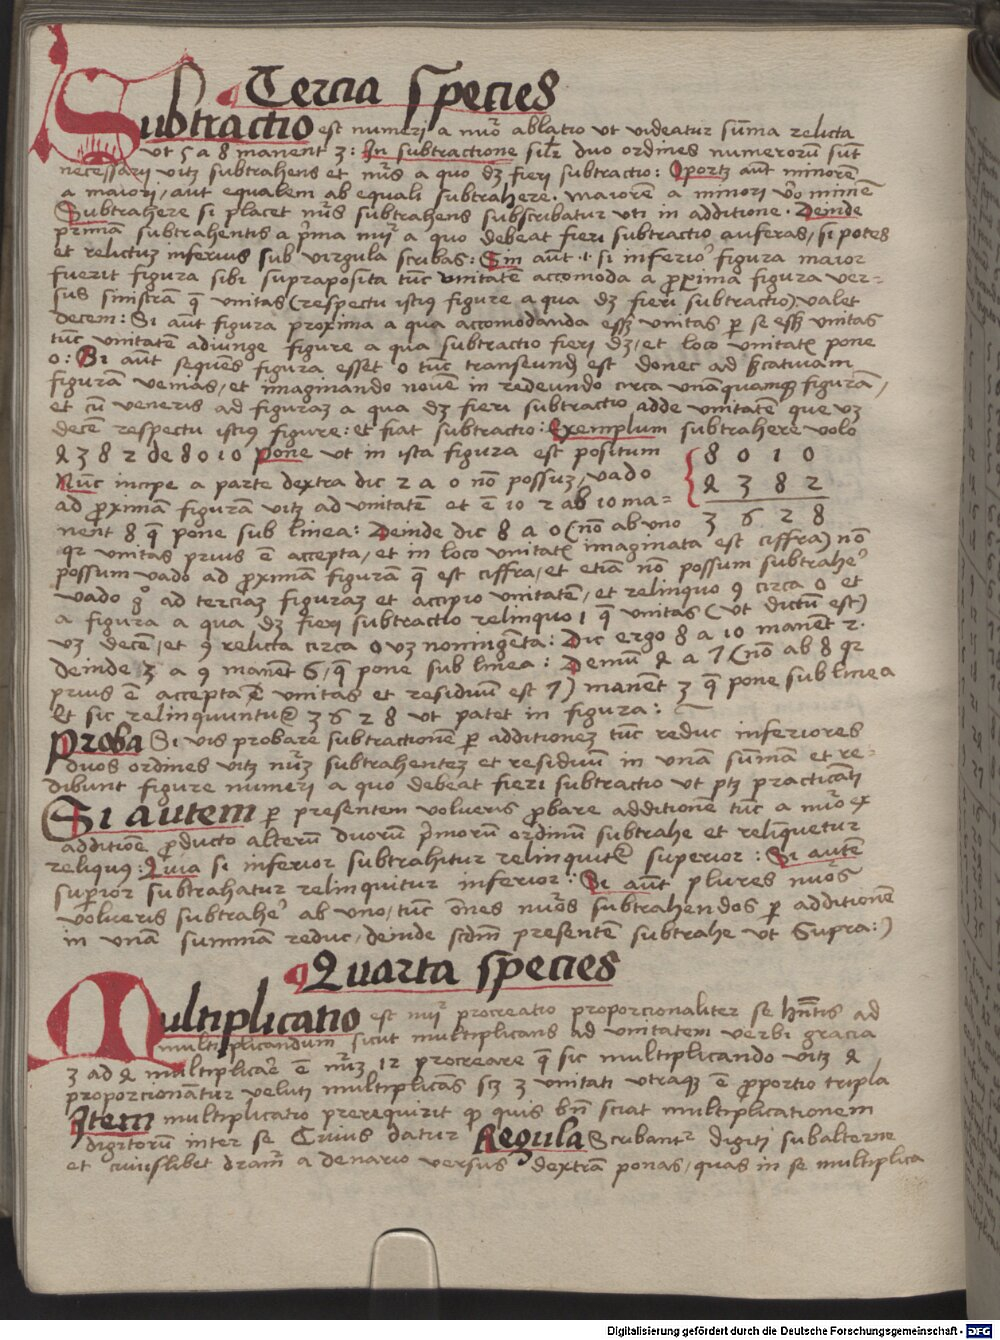 Tercia species
Subtractio est numeri a nūo ablatio ut videatur sūma relicta
ut 5 a 8 manent 3: In subtractione silr duo ordines numerorū sūt
necessarii vitz subtrahens et nūs a quo dz fieri subtractio: Oportz aūt minorē
a maiori, aut equalem ab equali subtrahere. maiorē a minori vo minīe
Subtrahere si placet nūs subtrahens subscribatur uti in additione. Deinde
primā subtrahentis a p̄ma nūi a quo debeat fieri subtractio auferas, si potes
et relictuz inferius sub virgula scribas: Sin aūt .i. si inferior figura maior
fuerit figura sibi supraposita tūc unitatē accomoda a proxima figura ver=
sus sinistrā q̄ unitas (respectu istius figure a qua dz fieri subtractio) valet
decem: Si aūt figura proxima a qua accomodanda essz unitas p se essz unitas
tūc unitatē adiunge figure a qua subtractio fieri dz, et loco unitatis pone
0: Si aūt sequēs figura esset 0 tūc transeundū est donec ad significativam
figurām venias, et imaginando novē in redeundo circa unāquamqz figurā,
et cū veneris ad figuraz a qua dz fieri subtractio adde unitatē que vz
decē respectu istius figure: et fiat subtractio: Exemplum subtrahere volo
4 3 8 2 de 8 0 1 0 Pone ut in ista figura est positum
8 0 1 0
4 3 8 2
3 6 2 8
Nūc incipe a parte dextra dic 2 a 0 nō possuz, vado
ad proximā figurām vitz ad unitatē et ē 10 2 ab 10 ma=
nent 8 q̄ pone sub linea: Deinde dic 8 a 0 (nō ab uno
qr unitas prius ē accepta, et in loco unitatis imaginata est ciffra) nō
possum vado ad proximā figurā q̄ est ciffra, et etiā nō possum subtrahe
vado go ad terciaz figuraz et accipio unitatē, et relinquo 9 circa 0 et
a figura a qua dz fieri subtractio relinquo 1 q̄ unitas (ut dictū est)
vz decē, et 9 relicta circa 0 vz noningēta: Dic ergo 8 a 10 manēt 2.
deinde 3 a 9 manēt 6, q̄ pone sub linea: Demū 4 a 7 (nō ab 8 qr
prius ē accepta unitas et residuū est 7) manēt 3 q̄ pone sub linea
Et sic relinquuntur 3 6 2 8 ut patet in figura:
Proba Si vis probare subtractionē p additionez tūc reduc inferiores
duos ordines vitz nūz subtrahentez et residuū in unā sūmā et re=
dibunt figure numeri a quo debeat fieri subtractio ut ptz practicāti
Si autem p presentem volueris probare additionē tūc a nūo ex
additiōe producto alterū duorū p̄morū ordinū subtrahe et relīquetur
reliquus: Quia si inferior subtrahitur relinquitr superior: Si autē
superior subtrahatur relinquitur inferior: Si aūt plures nūos
volueris subtrahe ab uno, tūc ōnes nūos subtrahendos p additionē
in unā summā reduc, deinde scdm presentē subtrahe ut supra:)
Quarta species
Multiplicatio est nūi procreatio proporcionaliter se hn̄tis ad
multiplicandum sicut multiplicans ad unitatem verbi gracia
3 ad 4 multiplicare ē nūz 12 procreare q̄ sic multiplicando vitz 4
proporcionātur veluti multiplicās scz 3 unitati utraqz ē proportio tripla
Item multiplicatio prerequirit qp quis bn̄ sciat multiplicationem
digitorū inter se Cuius datur Regula Scribantr digiti subalterne
et cuiuslibet dr̄am a denario versus dextrā ponas, quas in se multiplica